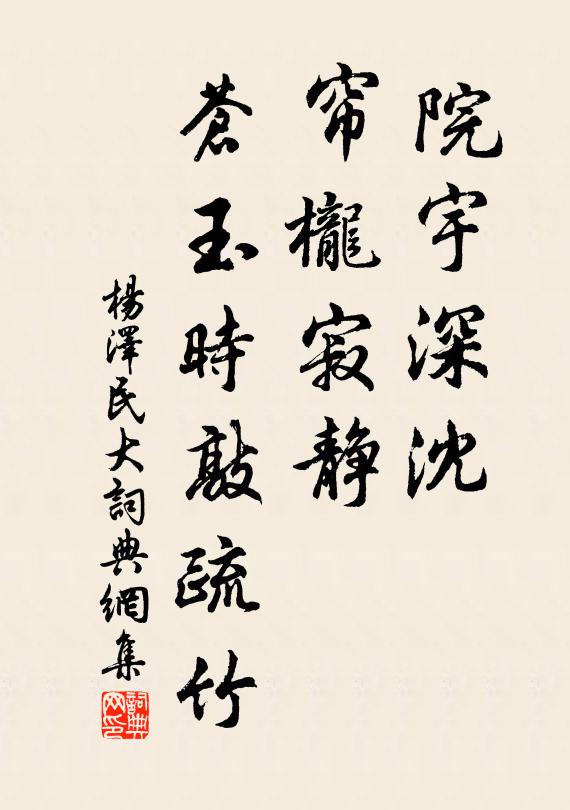 院宇深沈
帘櫳寂静
蒼玉時敲疏竹
楊澤民大詞典網集
詞典网印